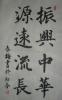 振興中華
源遠流長